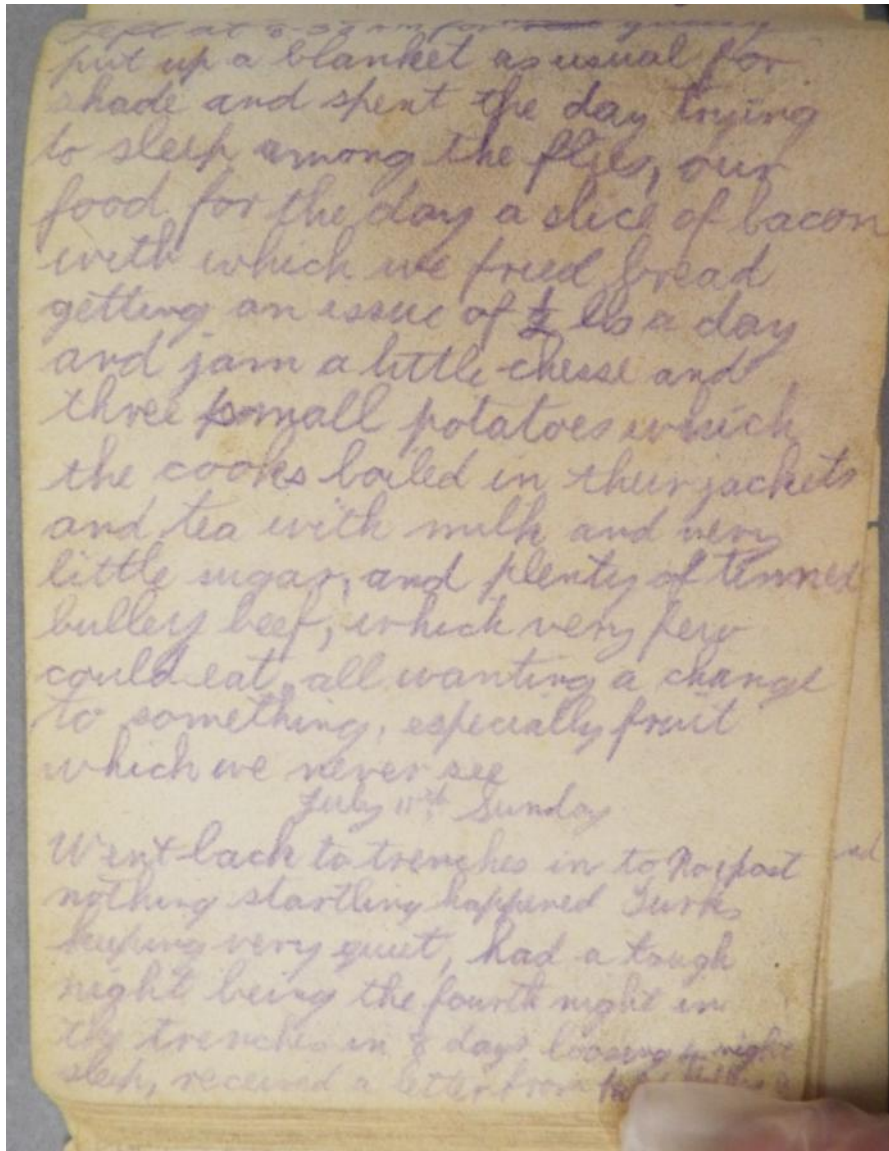 put up a blanket as usual for
shade and spent the day trying
to sleep among the flies, our
food for the day a slice of bacon
with which we fried bread
getting an issue of ½ lb a day
and jam a little cheese and
three small potatoes which
the cooks boiled in their jackets
and tea with milk and very
little sugar, and plenty of tinned
bulley beef, which very few
could eat, all wanting a change
to something, especially fruit
which we never see
July 11th Sunday
Went back to trenches in to No post
nothing startling happened Turks
keeping very quiet, had a tough
night being the fourth night in
the trenches in 8 days loosing night
sleep, received a letter from